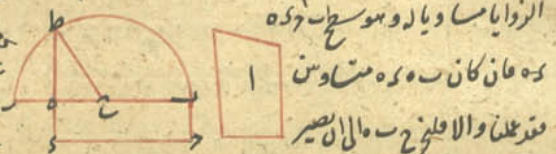 الزوايا مساويا له وهو سطح ب ح ء ه
ء ه فان كان ب ه ء ه متساويين
فقد عملنا والا فليخرج ب ه الى ان يصير
ط
ا
ر ه ح ب
ء ح